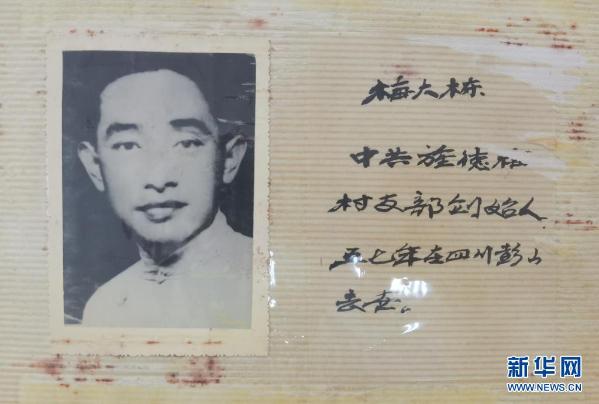 梅大栋
中共旌德
村支部创始人
五七年在四川彭山
去世。
新华网
WWW.NEWS.CN